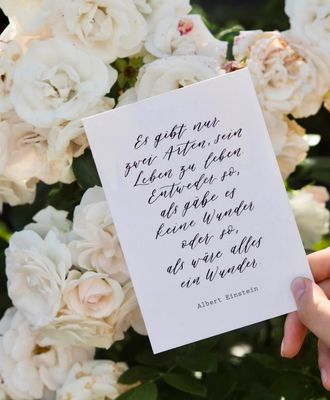 Es gibt nur
zwei Arten, sein
Leben zu leben
Entweder so,
als gäbe es
keine Wunder
oder so,
als wäre alles
ein Wunder.
Albert Einstein